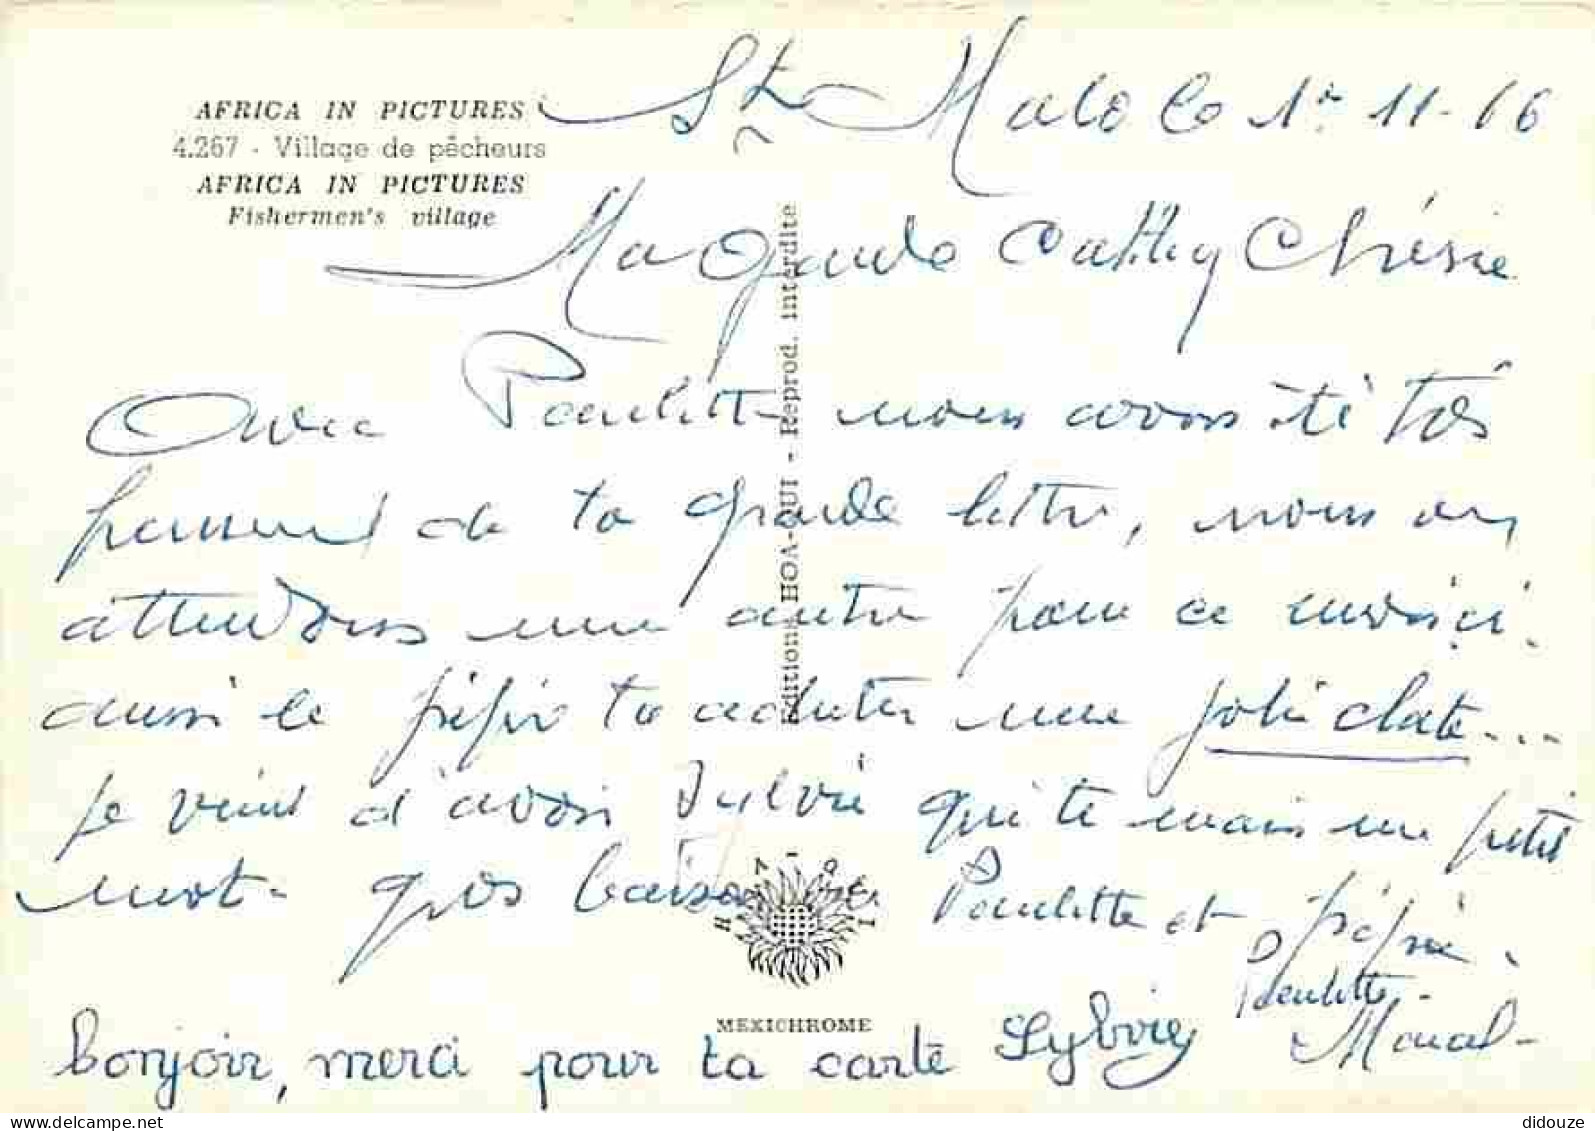 AFRICA IN PICTURES
4.267 - Village de pêcheurs
AFRICA IN PICTURES
Fishermen's village
St Malo le 1er 11-66
Ma Grande Cathy Chérie
Avec Paulette nous avons été très
heureux de ta grande lettre, nous en
attendons une autre pour ce mois ci.
aussi le pépé ta acheter une jolie
je vient d'avoir Sylvie qui te mais un petit
mot- gros baisers Paulette et pépé
Paulette -
Marcel -
bonjoir, merci pour ta carte Sylvie
Editions HOA-QUI - Reprod. interdite
HOA-QUI
MEXICHROME
delcampe.net
didouze